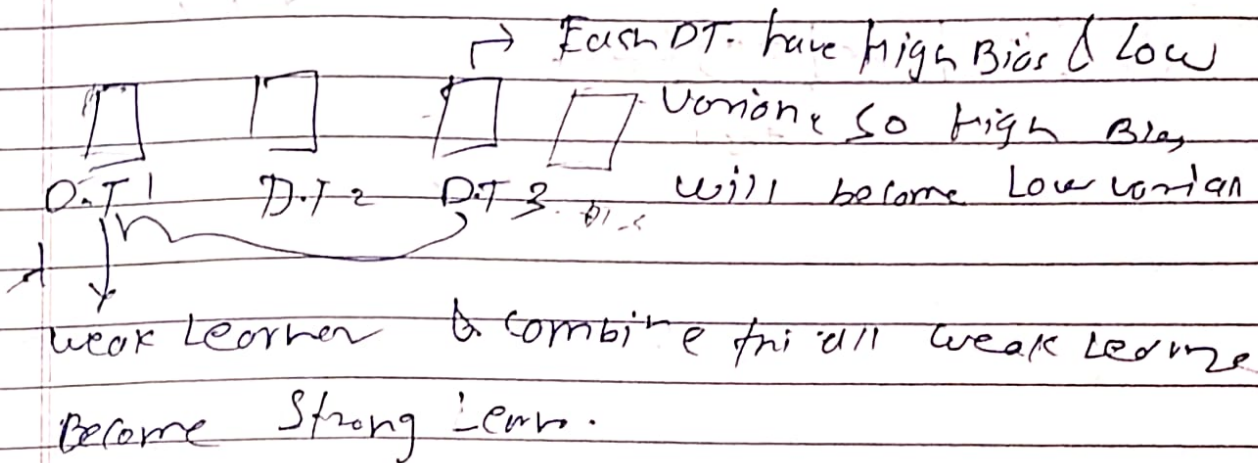 → Each DT. have High Bias & Low
Varianc so High Bias
D.T 1 D.T 2 D.T 3. will become Low varian
weak Learner & combine thi all weak Learne
Become Strong Learn.